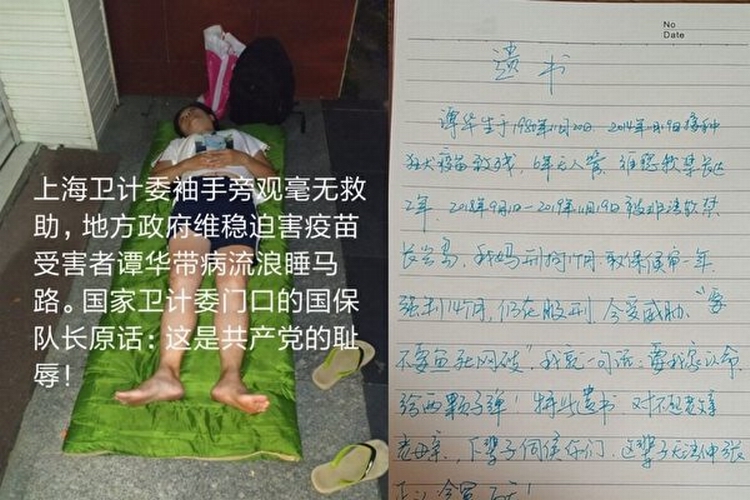 上海卫计委袖手旁观毫无救
助，地方政府维稳迫害疫苗
受害者谭华带病流浪睡马
路。国家卫计委门口的国保
队长原话：这是共产党的耻
辱！
No
Date
遗书
谭华生于1980年11月20日，2014年月9日接种
狂犬疫苗致残，6年无人管，维稳我
2年，2018年9月1日-2019年11月19日被非法软禁
长兴岛，我妈刑拘1个月取保候审一年，
强制14个月，仍在服刑，今受威胁，“
不要鱼死网破”我就一句话：要我家认命
给两颗子弹！特此遗书，对不起
老母亲，下辈子伺候你们，这辈子无法伸张
正义